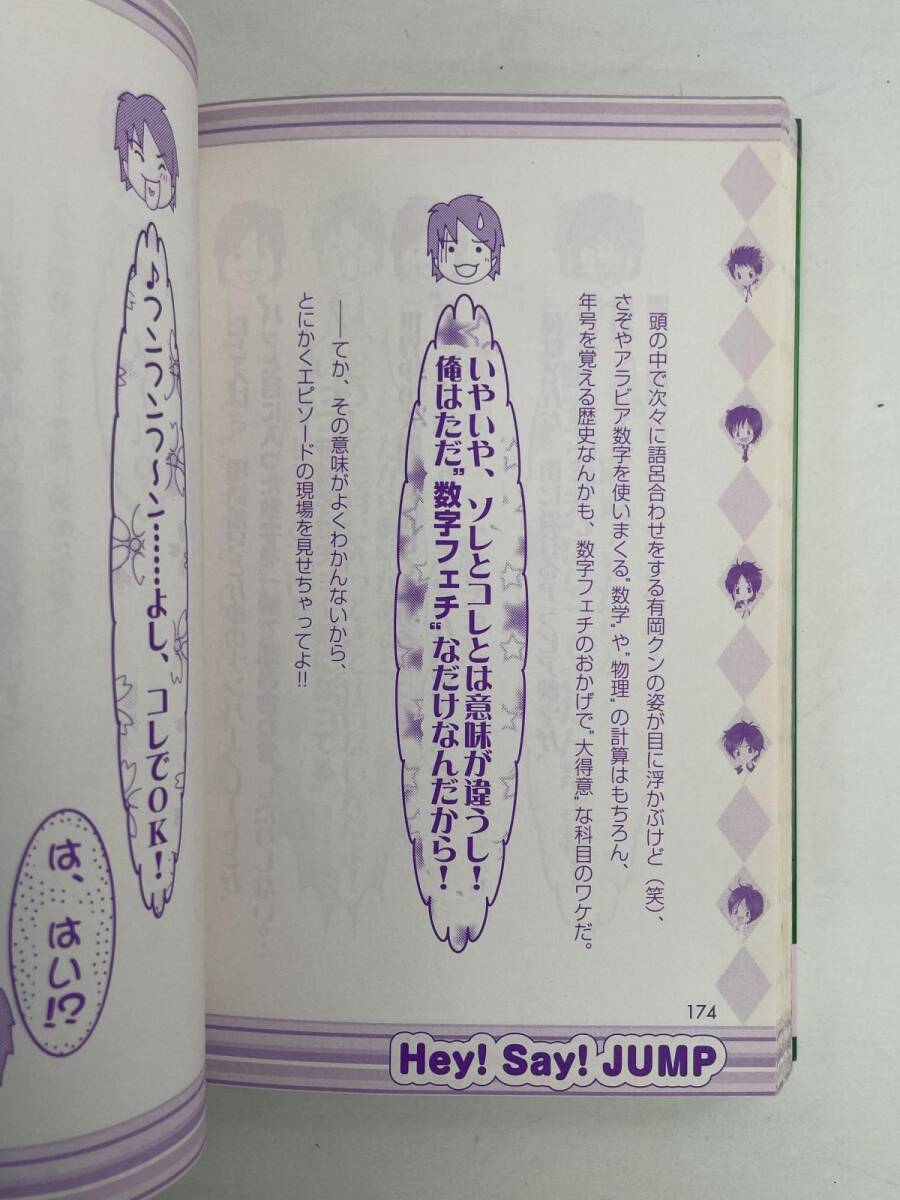 頭の中で次々に語呂合わせをする有岡クンの姿が目に浮かぶけど（笑）、
さぞやアラビア数字を使いまくる〝数学〟や〝物理〟の計算はもちろん、
年号を覚える歴史なんかも、数字フェチのおかげで〝大得意〟な科目のワケだ。
いやいや、ソレとコレとは意味が違うし！
俺はただ〝数字フェチ〟なだけなんだから！
――てか、その意味がよくわかんないから、
とにかくエピソードの現場を見せちゃってよ!!
174
Hey! Say! JUMP
♪つこつこつ〜こ………よし、コレでOK！
は、はい!?